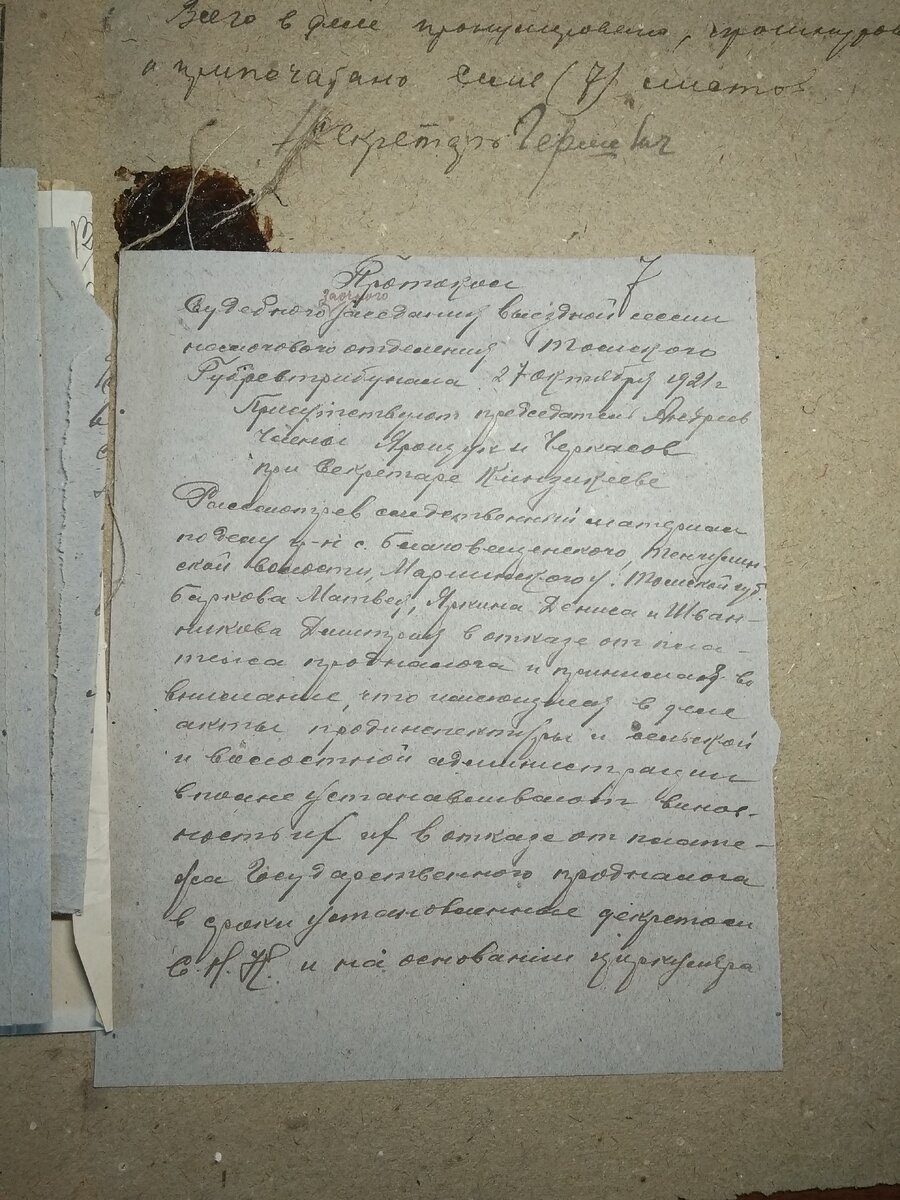 Всего в деле пронумеровано, прошнуров
и припечатано семь (7) листов
Секретарь
Протокол 7
заочного
Судебного заседания выездной сессии
налогового отделения Томского
Губревтрибунала 27 октября 1921 г
Присутствуют председатель Андреев
Члены Ярощук и Черкасов
при Секретаре Кинзикееве
Рассмотрев следственный материал
по делу гр-н с. Благовещенского, Тенгулин
ской волости, Мариинского у. Томской губ.
Баркова Матвея, Яркина Дениса и Шван-
никова Дмитрия в отказе от пла-
тежа продналога и принимая во
внимание, что имеющиеся в деле
акты продинспектуры и сельской
и волостной администрации
вполне устанавливают винов-
ность их в отказе от плате-
жа Государственного продналога
в сроки установленные декретом
С.Н.К. и на основании циркуляра